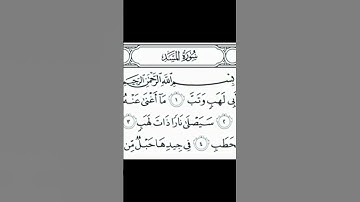 سُورَةُ المَسَد
بِسْمِ اللَّهِ الرَّحْمَٰنِ الرَّحِيمِ
بِي لَهَبٍ وَتَبَّ ١ مَا أَغْنَىٰ عَنْهُ
٢ سَيَصْلَىٰ نَارًا ذَاتَ لَهَبٍ ٣
حَطَبِ ٤ فِي جِيدِهَا حَبْلٌ مِّن